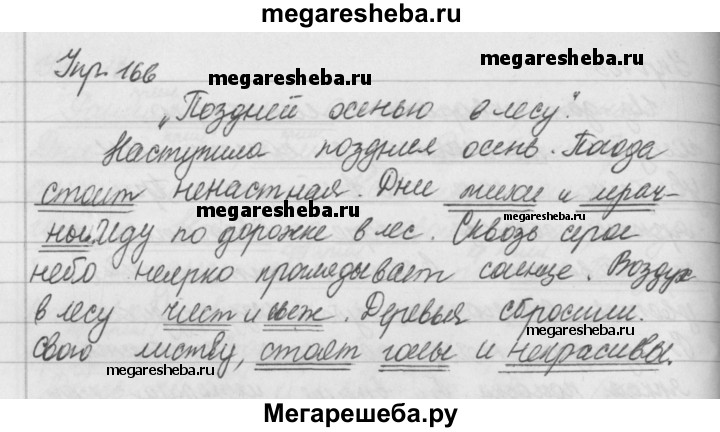 megaresheba.ru
Упр. 166
megaresheba.ru
„Поздней осенью в лесу".
Наступила поздняя осень. Погода
стоит ненастная. Дни тихи и мрач-
megaresheba.ru
megaresheba.ru
ны. Иду по дорожке в лес. Сквозь серое
небо неярко проглядывает солнце. Воздух
в лесу чист и свеж. Деревья сбросили
megaresheba.ru
свою листву, стоят голы и некрасивы.
megaresheba.ru
Мегарешеба.ру